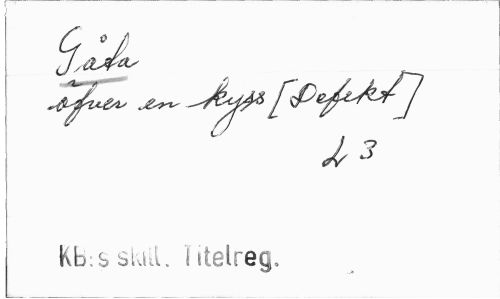 Gåta
öfver en kyss [Defekt]
L 3
KB:s skill. Titelreg.